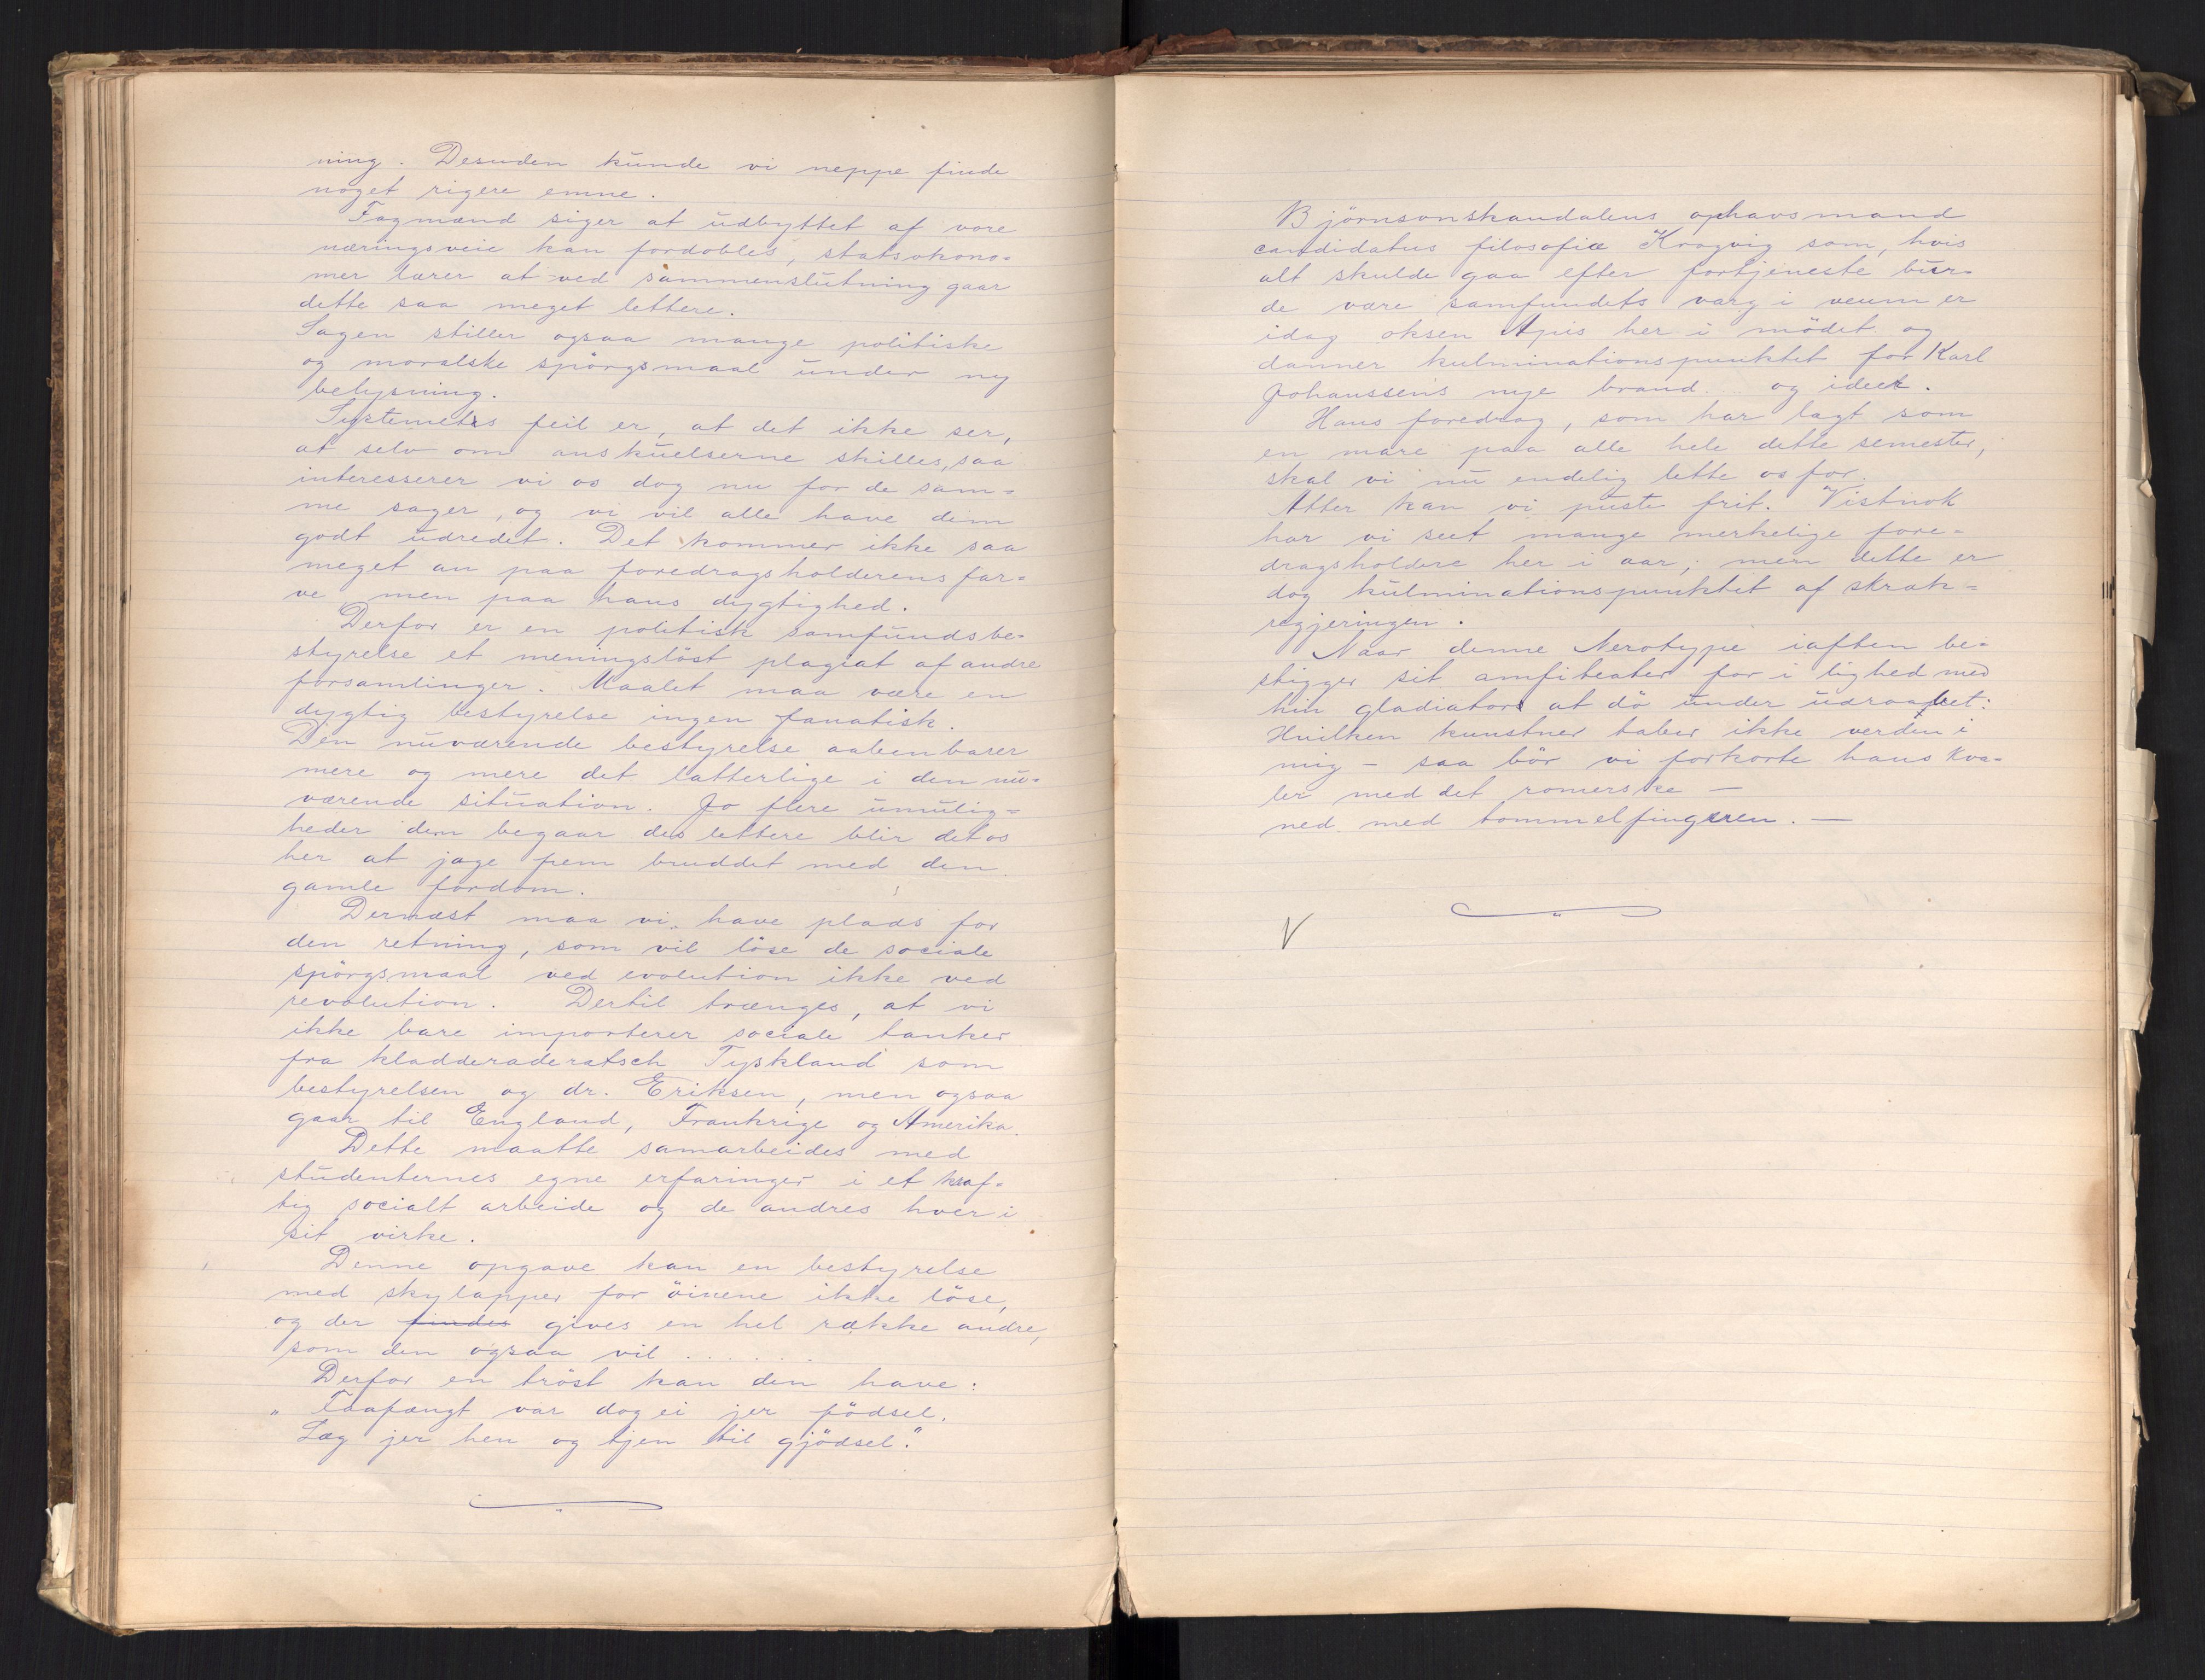 ning. Desuden kunde vi neppe finde
noget rigere emne.
Fagmænd siger at udbyttet af vore
næringsveie kan fordobles, statsøkono-
mer lærer at ved sammenslutning gaar
dette saa meget lettere.
Sagen stiller ogsaa mange politiske
og moralske spörgsmaal under ny
belysning.
Systemets feil er, at det ikke ser,
at selv om anskuelserne skilles, saa
interesserer vi os dog nu for de sam-
me sager, og vi vil alle have dem
godt udredet. Det kommer ikke saa
meget an paa foredragsholderens far-
ve men paa hans dygtighed.
Derfor er en politisk samfundsbe-
styrelse et meningslöst plagiat af andre
forsamlinger. Maalet maa være en
dygtig bestyrelse ingen fanatisk.
Den nuværende bestyrelse aabenbarer
mere og mere det latterlige i den nu-
værende situation. Jo flere umulig-
heder den begaar des lettere blir det os
her at jage frem bruddet med den
gamle fordom.
Dernæst maa vi have plads for
den retning, som vil löse de sociale
spörgsmaal ved evolution ikke ved
revolution. Dertil trænges, at vi
ikke bare importerer sociale tanker
fra kladderaderatsch Tyskland som
bestyrelsen og dr. Eriksen, men ogsaa
gaar til England, Frankrige og Amerika.
Dette maatte samarbeides med
studenternes egne erfaringer i et kraf-
tig socialt arbeide og de andres hver i
sit virke.
Denne opgave kan en bestyrelse
med skylapper for öinene ikke löse,
og der findes gives en hel række andre,
som den ogsaa vil . . . . . .
Derfor en tröst kan den have:
„Faafængt var dog ei jer födsel.
Læg jer hen og tjen til gjödsel."
Björnsonskandalens ophavsmand
candidatus filosofiæ Krogvig som, hvis
alt skulde gaa efter fortjeneste bur-
de være samfundets varg i veum er
idag oksen Apis her i mödet og
danner kulminationspunktet for Karl
Johanssens nye brand... og ideer.
Hans foredrag, som har lagt som
en mare paa alle hele dette semester,
skal vi nu endelig lette os for.
Atter kan vi puste frit. Vistnok
har vi seet mange merkelige fore-
dragsholdere her i aar; men dette er
dog kulminationspunktet af skrak-
regjeringen.
Naar denne Nerotype iaften be-
stiger sit amfiteater for i lighed med
hin gladiator at dö under udraabet:
Hvilken kunstner taber ikke verden i
mig – saa bör vi forkorte hans kva-
ler med det romerske —
ned med tommelfingeren. —
V